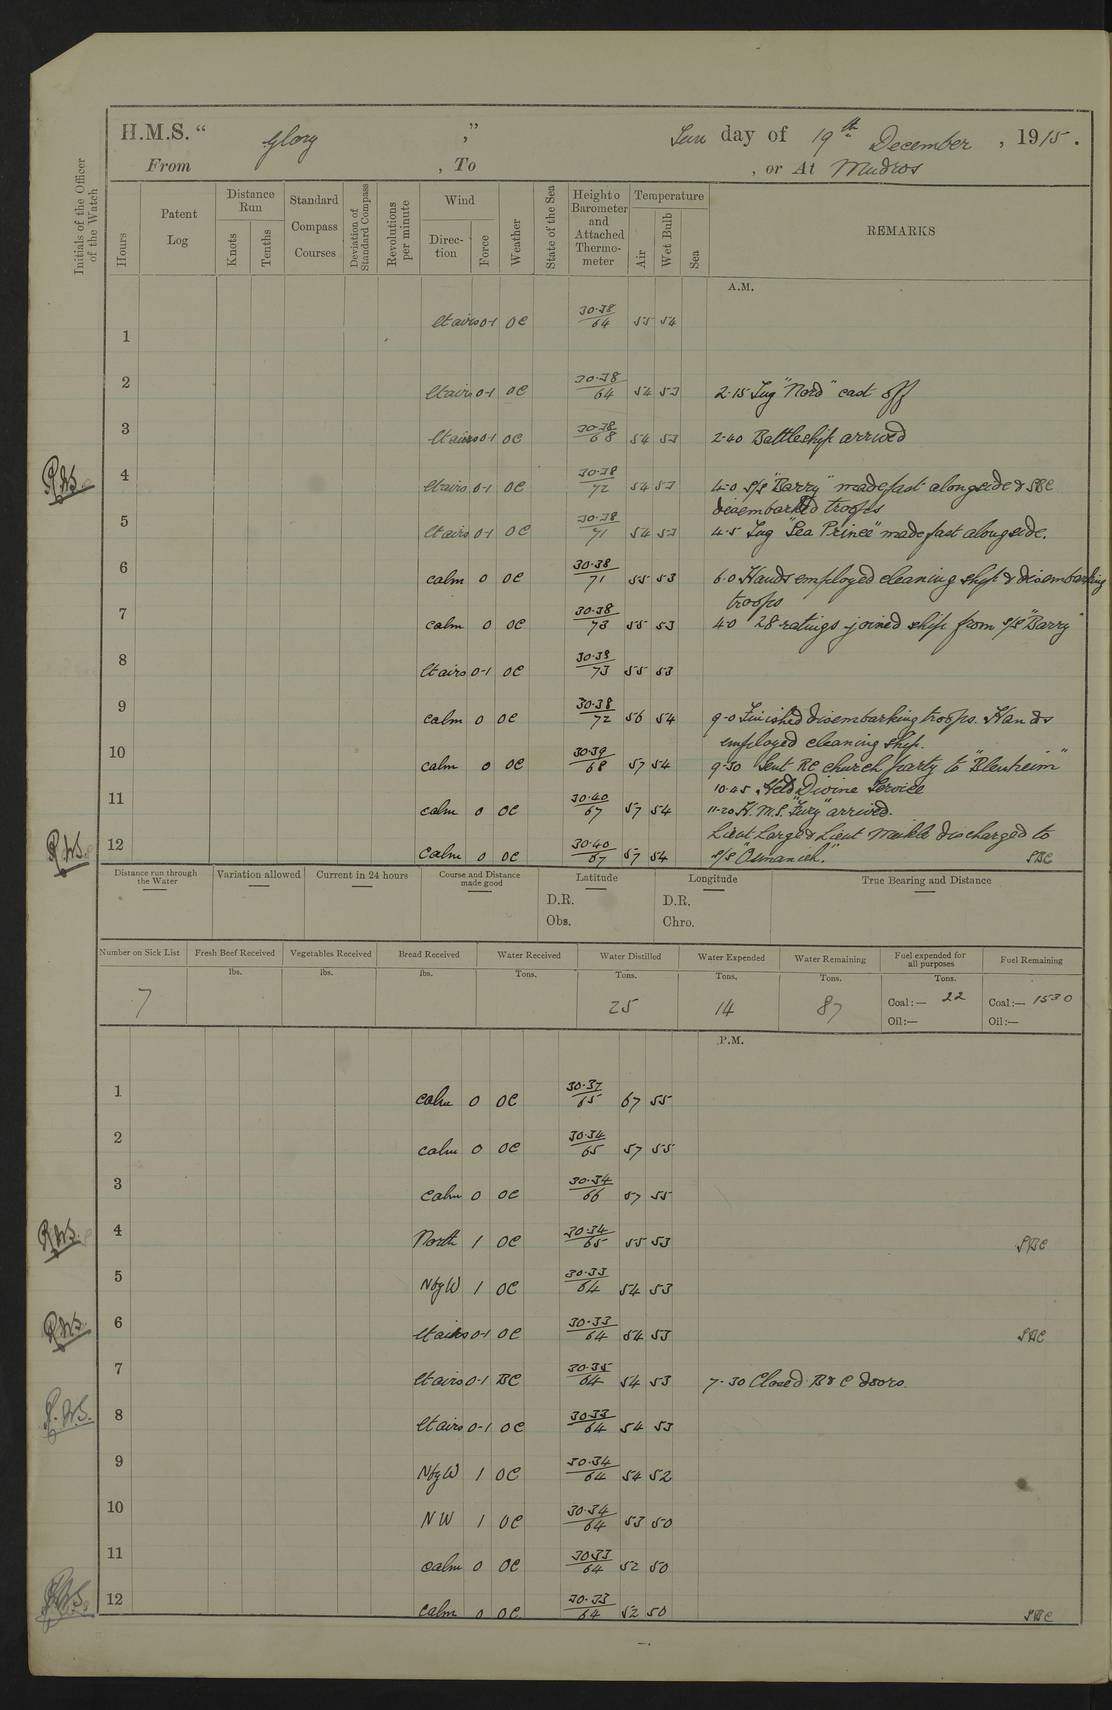 H.M.S. " Glory ," Sun day of 19th December , 1915 .
From , To , or At Mudros
Initials of the Officer of the Watch
Hours
Patent Log
Distance Run
Knots
Tenths
Standard Compass Courses
Deviation of Standard Compass
Revolutions per minute
Wind
Direc-tion
Force
Weather
State of the Sea
Height o Barometer and Attached Thermo-meter
Temperature
Air
Wet Bulb
Sea
REMARKS
A.M.
1 lt airs 0-1 OC 30·38/64 55 54
2 lt airs 0-1 OC 30·38/64 54 53 2·15 Tug "Nord" cast off
3 lt airs 0-1 OC 30·38/68 54 53 2·40 Battleship arrived
4 lt airs 0-1 OC 30·38/72 54 53 4·0 S/S "Barry" made fast alongside & SBC
disembarked troops
5 lt airs 0-1 OC 30·38/71 54 53 4·5 Tug "Sea Prince" made fast alongside.
6 calm 0 OC 30·38/71 55 53 6·0 Hands employed cleaning ship & disembarking
troops
7 calm 0 OC 30·38/73 55 53 4·0 28 ratings joined ship from S/S "Barry"
8 lt airs 0-1 OC 30·38/73 55 53
9 calm 0 OC 30·38/72 56 54 9·0 Finished disembarking troops. Hands
employed cleaning ship.
10 calm 0 OC 30·39/68 57 54 9·30 Sent RC church party to "Blenheim"
10·45 Held Divine Service
11 calm 0 OC 30·40/67 57 54 11·20 H.M.S. "Fury" arrived.
Lieut Large & Lieut Meikle discharged to
12 Calm 0 OC 30·40/67 57 54 S/S "Osmanieh." SBC
Distance run through the Water
Variation allowed
Current in 24 hours
Course and Distance made good
Latitude
D.R.
Obs.
Longitude
D.R.
Chro.
True Bearing and Distance
Number on Sick List
Fresh Beef Received
Vegetables Received
Bread Received
Water Received
Water Distilled
Water Expended
Water Remaining
Fuel expended for all purposes
Fuel Remaining
lbs. lbs. lbs. Tons. Tons. Tons. Tons. Tons.
7 25 14 87 Coal:— 22 Coal:— 1530
Oil:— Oil:—
P.M.
1 calm 0 OC 30·37/65 67 55
2 calm 0 OC 30·34/65 57 55
3 Calm 0 OC 30·34/66 57 55
4 North 1 OC 30·34/65 55 53 SBC
5 NbyW 1 OC 30·33/64 54 53
6 lt airs 0-1 OC 30·33/64 54 53 SBC
7 lt airs 0-1 BC 30·35/64 54 53 7·30 Closed B & C doors.
8 lt airs 0-1 OC 30·33/64 54 53
9 NbyW 1 OC 30·34/64 54 52
10 NW 1 OC 30·34/64 53 50
11 calm 0 OC 30·33/64 52 50
12 calm 0 OC 30·33/64 52 50 SBC